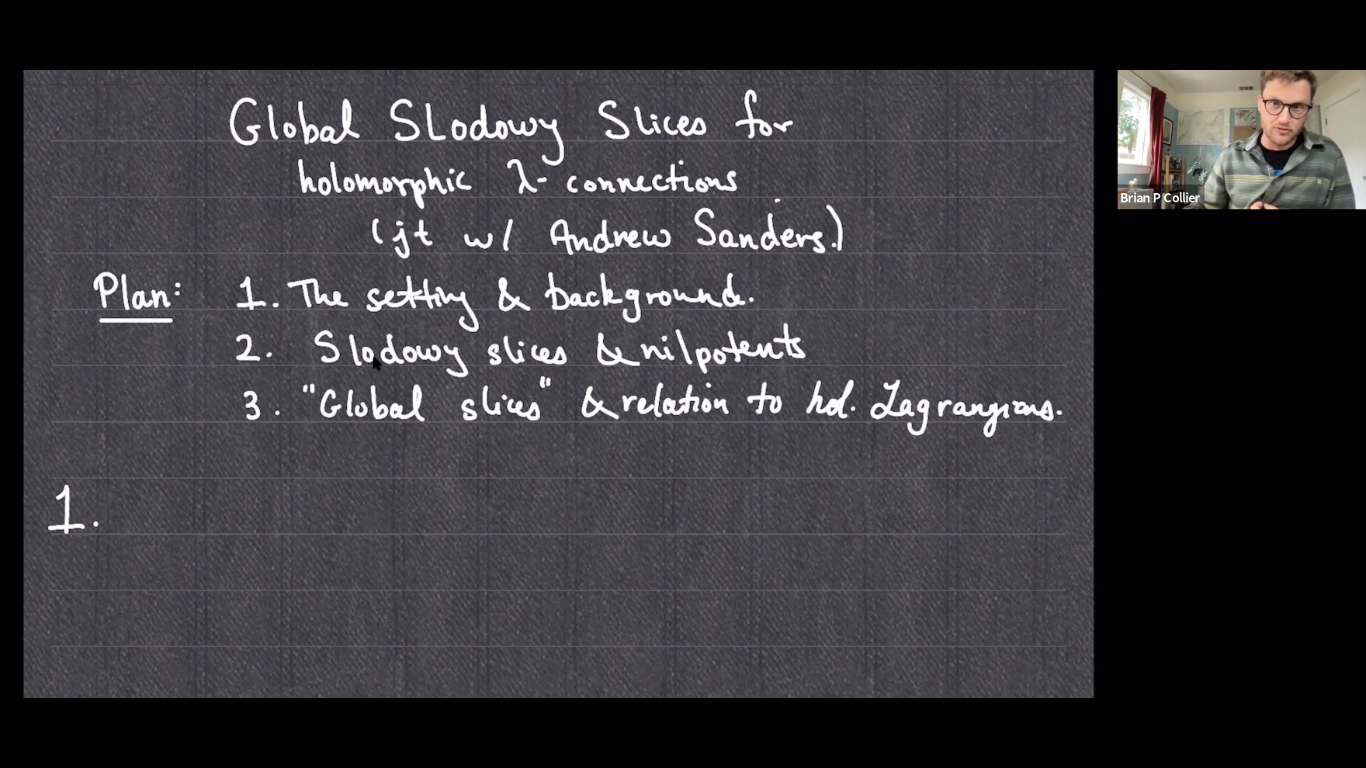 Global Slodowy Slices for
holomorphic λ-connections
(jt w/ Andrew Sanders.)
Plan: 1. The setting & background.
2. Slodowy slices & nilpotents
3. "Global slices" & relation to hol. Lagrangians.
1.
Brian P Collier